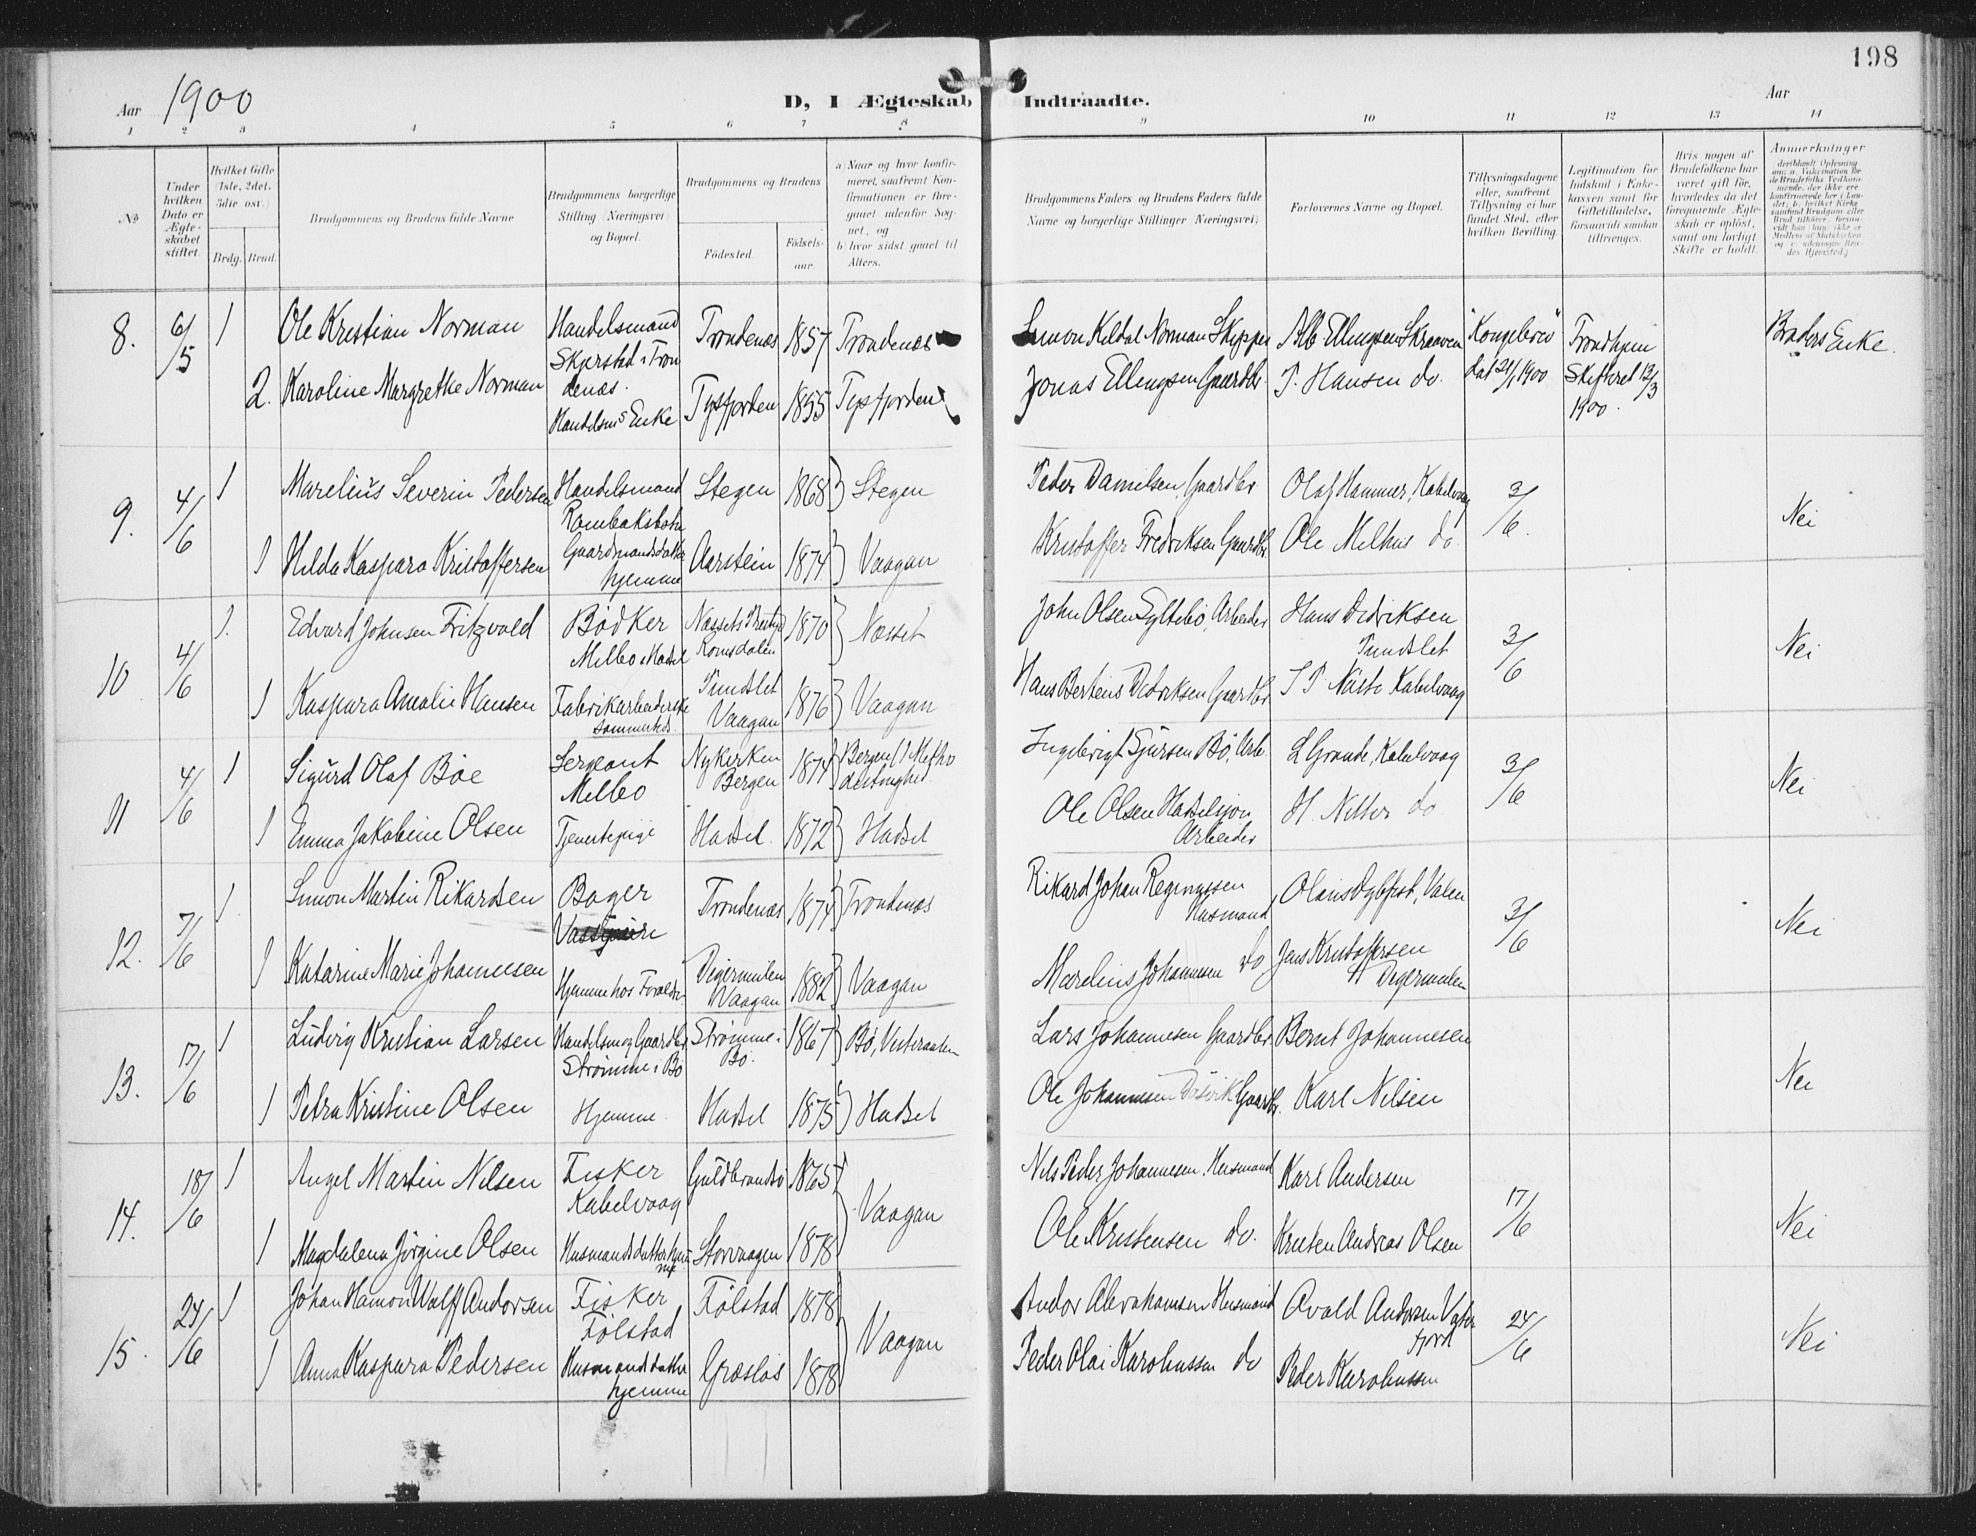 198
Aar 1900
D, I Ægteskab Indtraadte.
Aar
1 2 3 4 5 6 7 8 9 10 11 12 13 14
No
Under hvilken Dato er Ægteskabet stiftet.
Hvilket Gifte 1ste, 2det, 3die osv.
Brdg. Brud.
Brudgommens og Brudens fulde Navne
Brudgommens borgerlige Stilling (Næringsvei) og Bopæl.
Brudgommens og Brudens
Fødested.
Fødselsaar.
a) Naar og hvor konfirmeret, saafremt Konfirmationen er foregaaet udenfor Sognet, og
b) hvor sidst gaaet til Alters.
Brudgommens Faders og Brudens Faders fulde Navne og borgerlige Stillinger (Næringsvei)
Forlovernes Navne og Bopæl.
Tillysningsdagene eller, saafremt Tillysning ei har fundet Sted, efter hvilken Bevilling.
Legitimation for Indskud i Enkekassen samt for Giftetilladelse, forsaavidt saadan tiltrænges.
Hvis nogen af Brudefolkene har været gift før, hvorledes da det foregaaende Ægteskab er opløst, samt om lovligt Skifte er holdt.
Anmerkninger
8. 6/5 1 Ole Kristian Norman Handelsmand Skjærstad i Trondenæs. Trondenæs 1857 Trondenæs Simon Keldal Norman Skipper Alb Ellingsen Skraaven "Kongebrev" dat 24/1 1900 Trondhjem Skifteret 12/3 1900. Broders Enke.
2. Karoline Margrethe Norman Handelsms Enke Tysfjorden 1855 Tysfjorden Jonas Ellingsen Gaardbr. P. Hansen do.
9. 4/6 1 Marelius Severin Pedersen Handelsmand Rombaksbotn Stegen 1868 Stegen Peder Danielsen, Gaardbr Olaf Hammer, Kabelvaag 3/6. Nei
1 Hilda Kaspara Kristoffersen Gaardmandsdatter hjemme Aarstein 1874 Vaagan Kristoffer Fredriksen Gaardbr Ole Melhus do.
10 4/6 1. Edvard Johnsen Fitzvold Bødker Melbo i Hadsel Næssets Romsdalen 1870 Næsset John Olsen Syltebø, Arbeider Hans Didriksen Tundslet 3/6 Nei
1 Kaspara Amalie Hansen Fabrikarbeiderske sammesteds. Tundslet Vaagan 1876 Vaagan Hans Bertens Didriksen Gaardbr Kabelvaag
11 4/6 1 Sigurd Olaf Böe Sergeant Melbo Nykirken Bergen 1874 Bergen Ingebrigt Sjursen Bö, Arb. L Grande, Kabelvaag 3/6 Nei
1 Emma Jakobine Olsen Tjenestepige Hadsel. 1872 Hadsel Ole Olsen Arbeider H. Nilter do.
12. 7/6 1 Simon Martin Rikardsen Bager Trondenæs 1874 Trondenæs Rikard Johan Husmand Valen 3/6 Nei
1 Katarine Marie Johannesen Hjemme hos Forældre Digermulen Vaagan 1882 Vaagan Marelius Johannesen do Jens Kristoffersen Digermulen
13. 17/6 1 Ludvig Kristian Larsen Handelsm og Gaardbr Strømme i Bø Strømme i Bø. 1867 Bø, Vesteraalen Lars Johannesen Gaardbr Bernt Johannesen Nei
1 Petra Kristine Olsen Hjemme. Hadsel 1875 Hadsel Ole Johannesen Gaardbr. Karl Nilsen
14. 18/6 1 Angel Martin Nilsen Fisker Kabelvaag Guldbrandsö 1865 Vaagan Nils Peder Johannesen, Husmand Karl Andersen 17/6 Nei
1 Magdalena Jörgine Olsen Husmandsdatter hjemme Storvaagen 1878 Ole Kristensen do. Kristen Andreas Olsen
15. 24/6 1 Johan Hamon Wulff Andorsen Fisker Følstad Følstad 1878 Vaagan Andor Abrahamsen Husmand Avald Andorsen 24/6 Nei
1 Anna Kaspara Pedersen Husmandsdatter hjemme Græslös 1878 Peder Olai Karoliussen do Peder Karoliussen